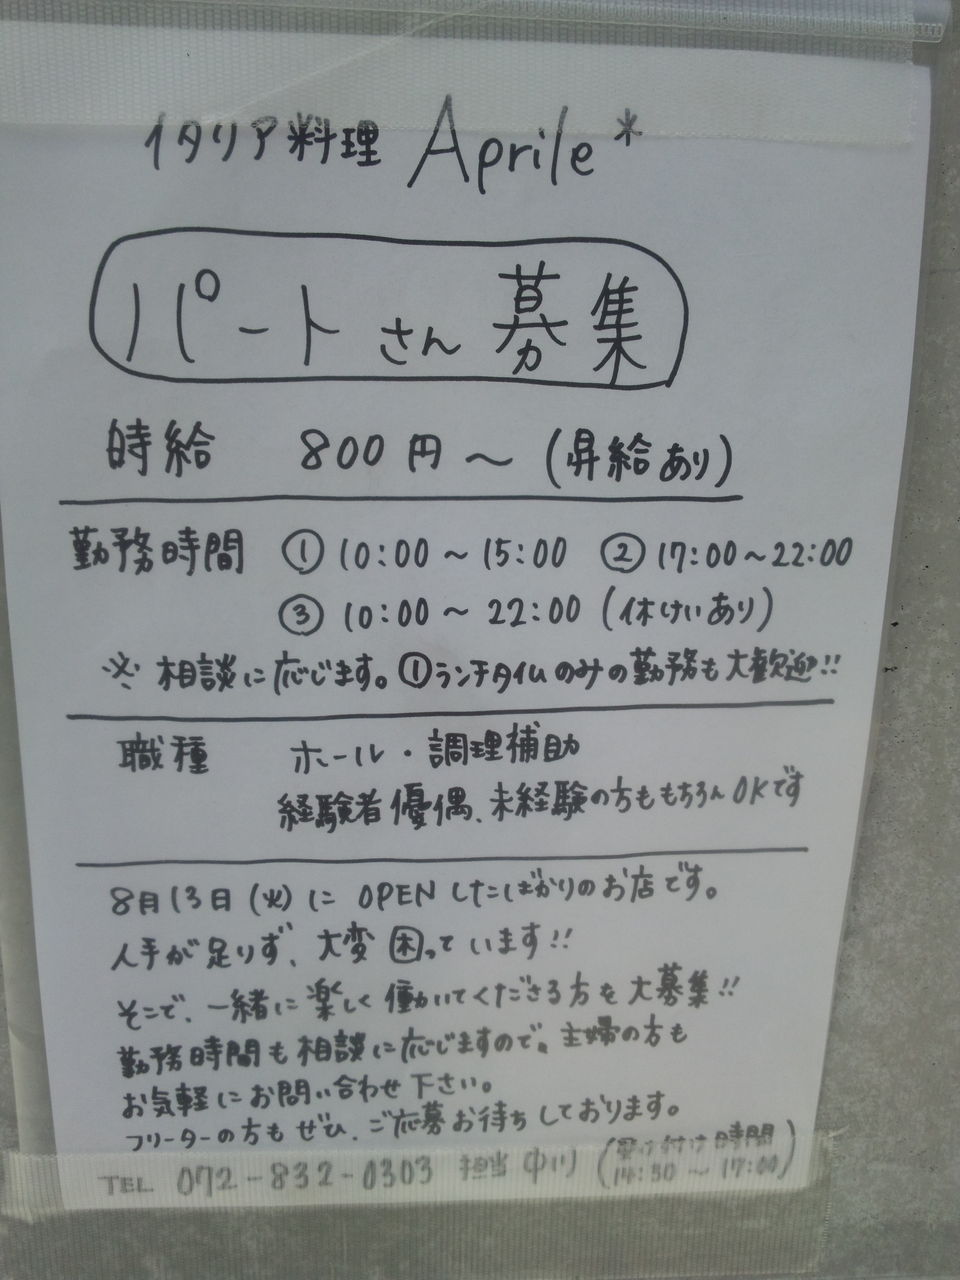 イタリア料理 Aprile*
パートさん募集
時給 800円～(昇給あり)
勤務時間 ①10:00～15:00 ②17:00～22:00
③10:00～22:00(休けいあり)
※相談に応じます。①ランチタイムのみの勤務も大歓迎!!
職種 ホール・調理補助
経験者優偶、未経験の方ももちろんOKです
8月13日(火)にOPENしたばかりのお店です。
人手が足りず、大変困っています!!
そこで、一緒に楽しく働いてくださる方を大募集!!
勤務時間も相談に応じますので、主婦の方も
お気軽にお問い合わせ下さい。
フリーターの方もぜひ、ご応募お待ちしております。
TEL 072-832-0303 担当 中川 (受け付け時間
14:30～17:00)